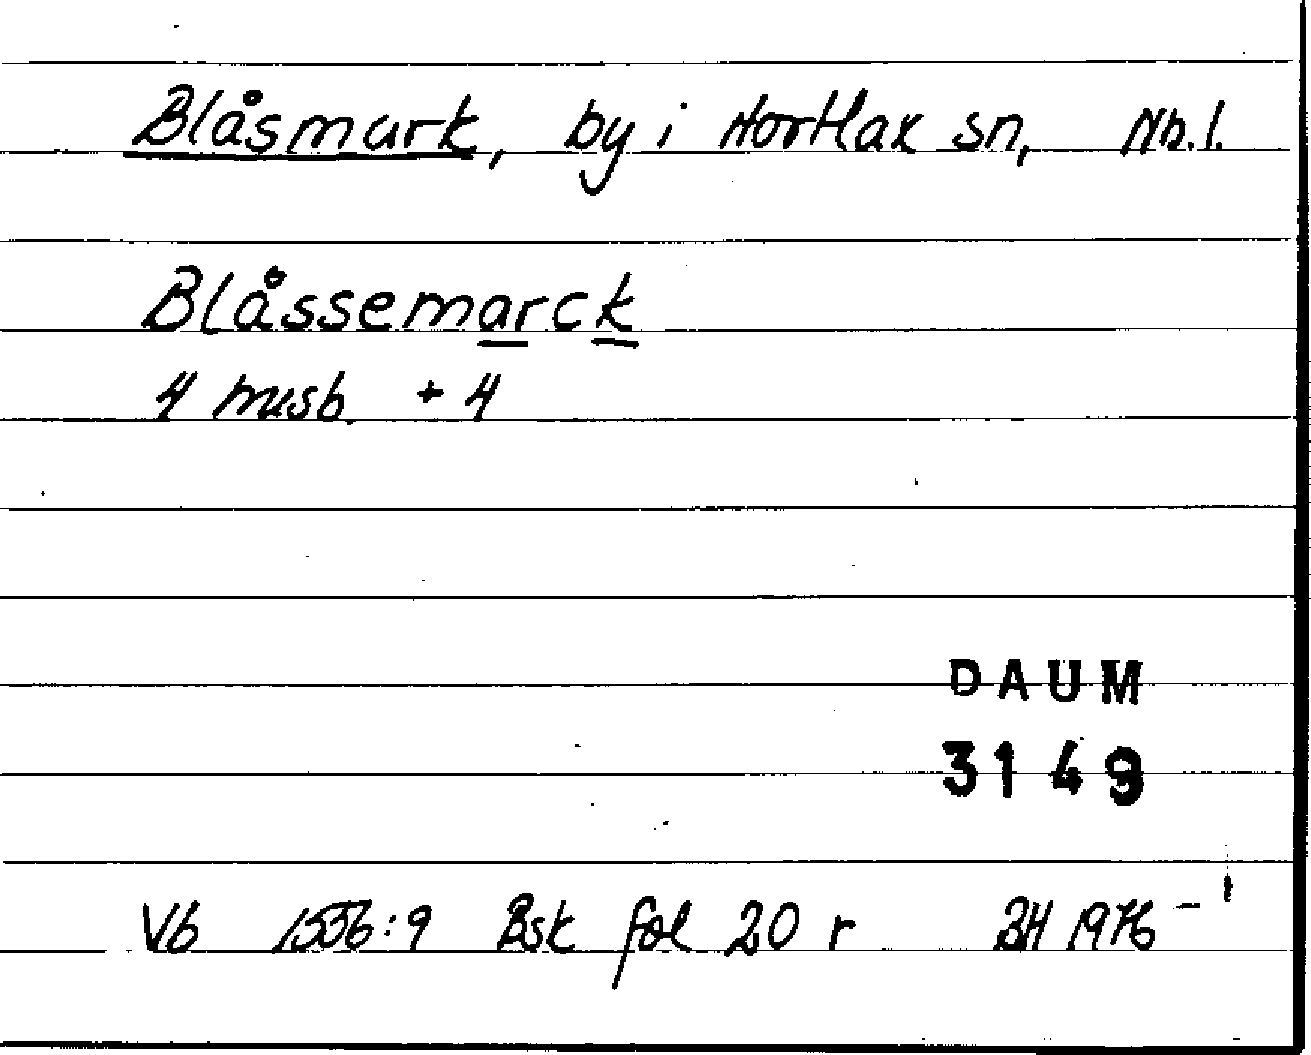 Blåsmark, by i Hortlax sn, Nb.l.
Blåssemarck
4 husb. + 4
DAUM
3149
Vb 1556:9 Bsk fol 20 r BH 1976